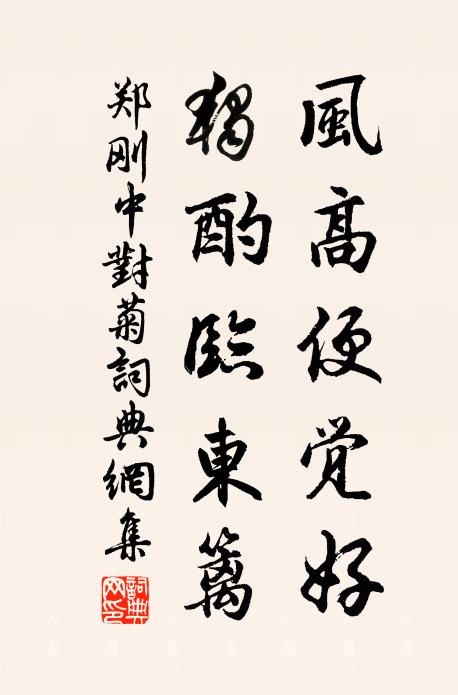 風高便覚好
獨酌臨東籬
郑刚中對菊詞典網集
詞典網印